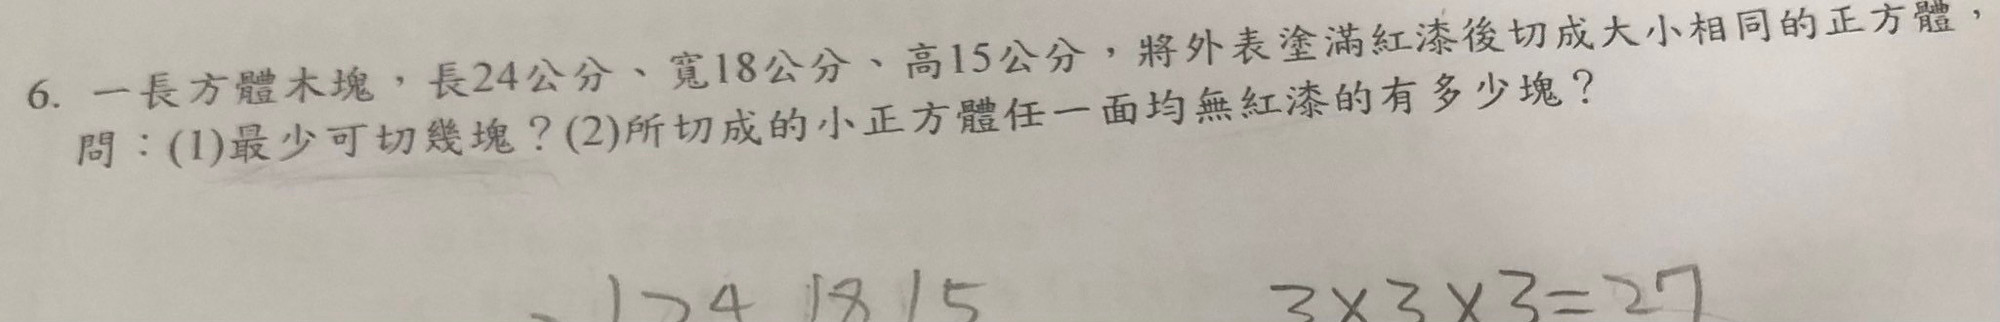 6. 一長方體木塊，長24公分、寬18公分、高15公分，將外表塗滿紅漆後切成大小相同的正方體，
問：(1)最少可切幾塊？(2)所切成的小正方體任一面均無紅漆的有多少塊？
24 18 15 3×3×3=27